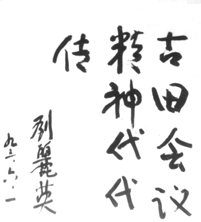 古田会议
精神代代
传
刘丽英
九三.六.一